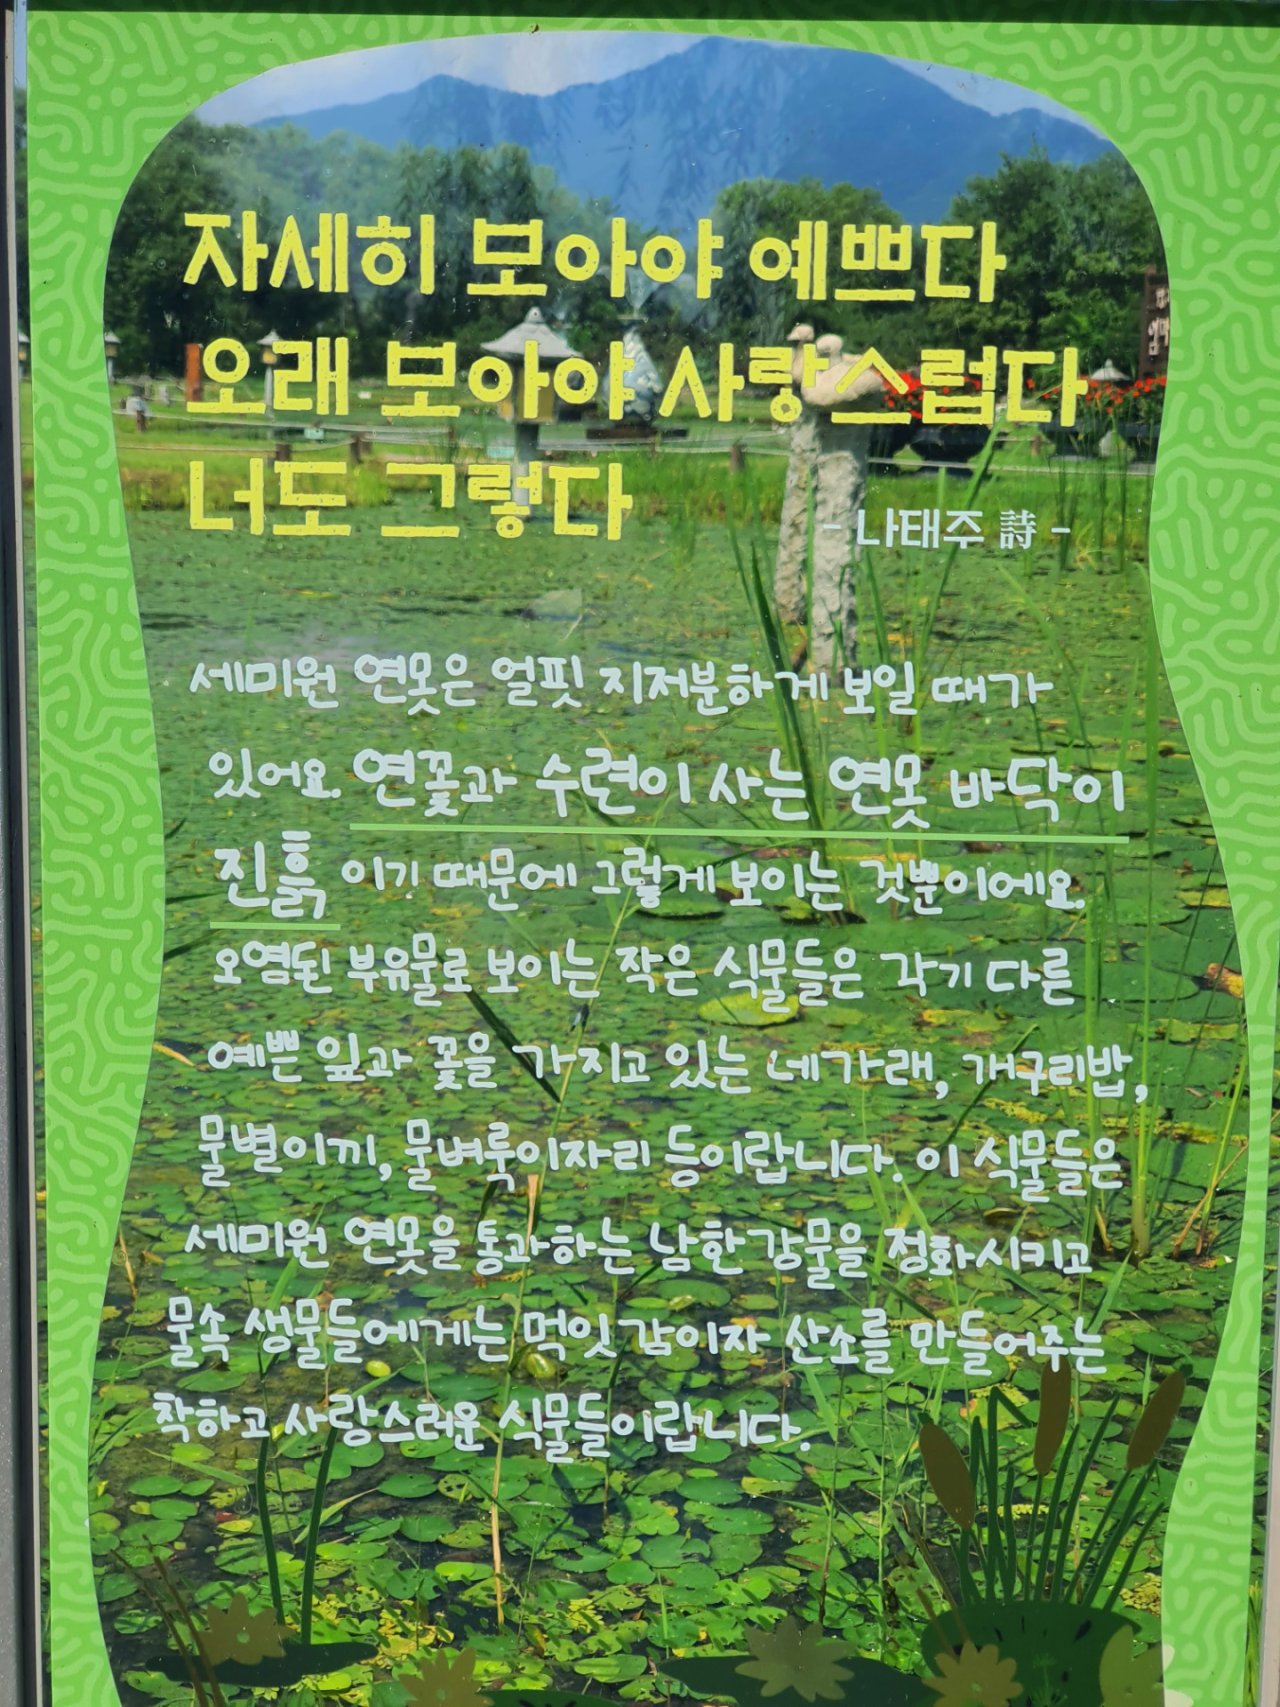 자세히 보아야 예쁘다
오래 보아야 사랑스럽다
너도 그렇다
- 나태주 詩 -
세미원 연못은 얼핏 지저분하게 보일 때가
있어요. 연꽃과 수련이 사는 연못 바닥이
진흙 이기 때문에 그렇게 보이는 것뿐이에요.
오염된 부유물로 보이는 작은 식물들은 각기 다른
예쁜 잎과 꽃을 가지고 있는 네가래, 개구리밥,
물별이끼, 물벼룩이자리 등이랍니다. 이 식물들은
세미원 연못을 통과하는 남한강물을 정화시키고
물속 생물들에게는 먹잇감이자 산소를 만들어주는
착하고 사랑스러운 식물들이랍니다.